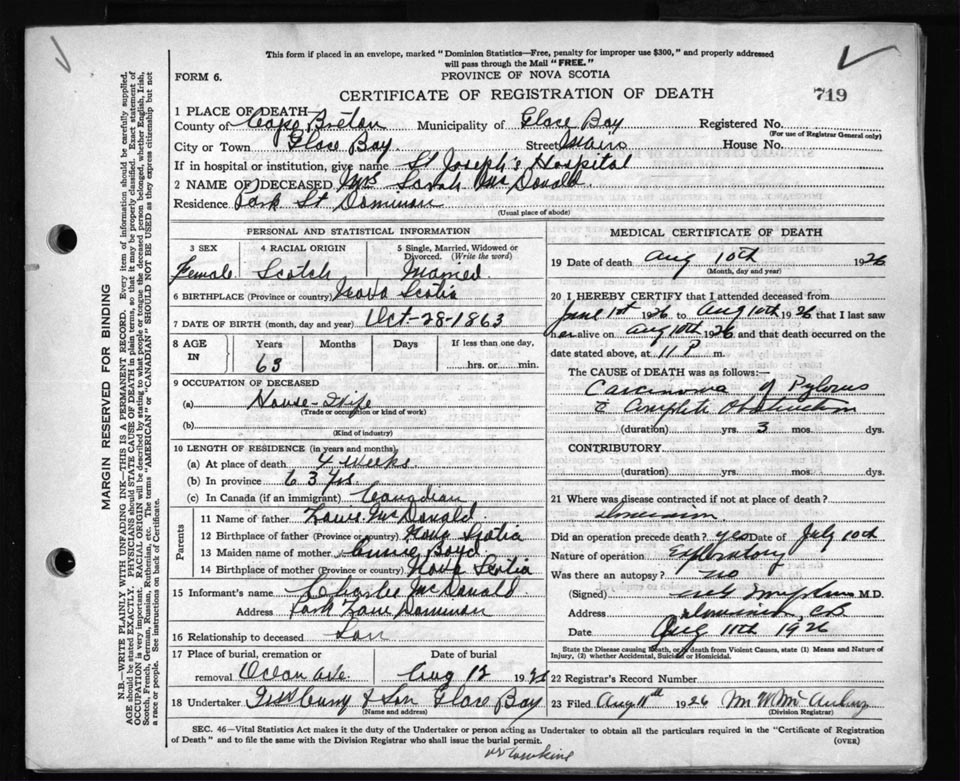 This form if placed in an envelope, marked "Dominion Statistics—Free, penalty for improper use $300," and properly addressed
will pass through the Mail "FREE."
PROVINCE OF NOVA SCOTIA
FORM 6.
CERTIFICATE OF REGISTRATION OF DEATH
719
MARGIN RESERVED FOR BINDING
N.B.—WRITE PLAINLY WITH UNFADING INK—THIS IS A PERMANENT RECORD. Every item of information should be carefully supplied.
AGE should be stated EXACTLY. PHYSICIANS should STATE CAUSE OF DEATH in plain terms, so that it may be properly classified. Exact statement of
OCCUPATION is very important. RACIAL ORIGIN will be described by stating to what people or tongue the deceased person belonged, whether English, Irish,
Scotch, French, German, Russian, Ruthenian, etc. The terms "AMERICAN" or "CANADIAN" SHOULD NOT BE USED as they express citizenship but not
a race or people. See instructions on back of Certificate.
1 PLACE OF DEATH
County of Cape Breton Municipality of Glace Bay Registered No.
(For use of Registrar General only)
City or Town Glace Bay Street Main House No.
If in hospital or institution, give name St Joseph's Hospital
2 NAME OF DECEASED Mrs Sarah McDonald
Residence Park St Dominion
(Usual place of abode)
PERSONAL AND STATISTICAL INFORMATION
3 SEX 4 RACIAL ORIGIN 5 Single, Married, Widowed or Divorced. (Write the word)
Female Scotch Married
6 BIRTHPLACE (Province or country) Nova Scotia
7 DATE OF BIRTH (month, day and year) Oct-28-1863
8 AGE IN Years Months Days If less than one day,
63 hrs. or min.
9 OCCUPATION OF DECEASED
(a) House-Wife
(Trade or occupation or kind of work)
(b)
(Kind of industry)
10 LENGTH OF RESIDENCE (in years and months)
(a) At place of death 4 weeks
(b) In province 63 yrs.
(c) In Canada (if an immigrant) Canadian
Parents
11 Name of father McDonald
12 Birthplace of father (Province or Country) Nova Scotia
13 Maiden name of mother Annie Boyd
14 Birthplace of mother (Province or Country) Nova Scotia
15 Informant's name Charles McDonald
Address Park Lane Dominion
16 Relationship to deceased Son
17 Place of burial, cremation or removal Date of burial
Ocean Ave Aug 12 1926
18 Undertaker & Son Glace Bay
(Name and address)
MEDICAL CERTIFICATE OF DEATH
19 Date of death Aug 10th 1926
(Month, day and year)
20 I HEREBY CERTIFY that I attended deceased from
June 1st 1926 to Aug 10th 1926 that I last saw
her alive on Aug 10th 1926 and that death occurred on the
date stated above, at 11 P m.
The CAUSE OF DEATH was as follows:—
Carcinoma of Pylorus
& Complete Obstruction
(duration) yrs. 3 mos. dys.
CONTRIBUTORY
(duration) yrs. mos. dys.
21 Where was disease contracted if not at place of death?
Dominion
Did an operation precede death? yes Date of July 10th
Nature of operation Exploratory
Was there an autopsy? no
(Signed) M.D.
Address Dominion, C.B.
Date Aug 11th 1926
State the Disease causing Death, or, if death from Violent Causes, state (1) Means and Nature of Injury, (2) whether Accidental, Suicidal or Homicidal.
22 Registrar's Record Number
23 Filed Aug 11th 1926
(Division Registrar)
SEC. 46—Vital Statistics Act makes it the duty of the Undertaker or person acting as Undertaker to obtain all the particulars required in the "Certificate of Registration
of Death" and to file the same with the Division Registrar who shall issue the burial permit.
(OVER)